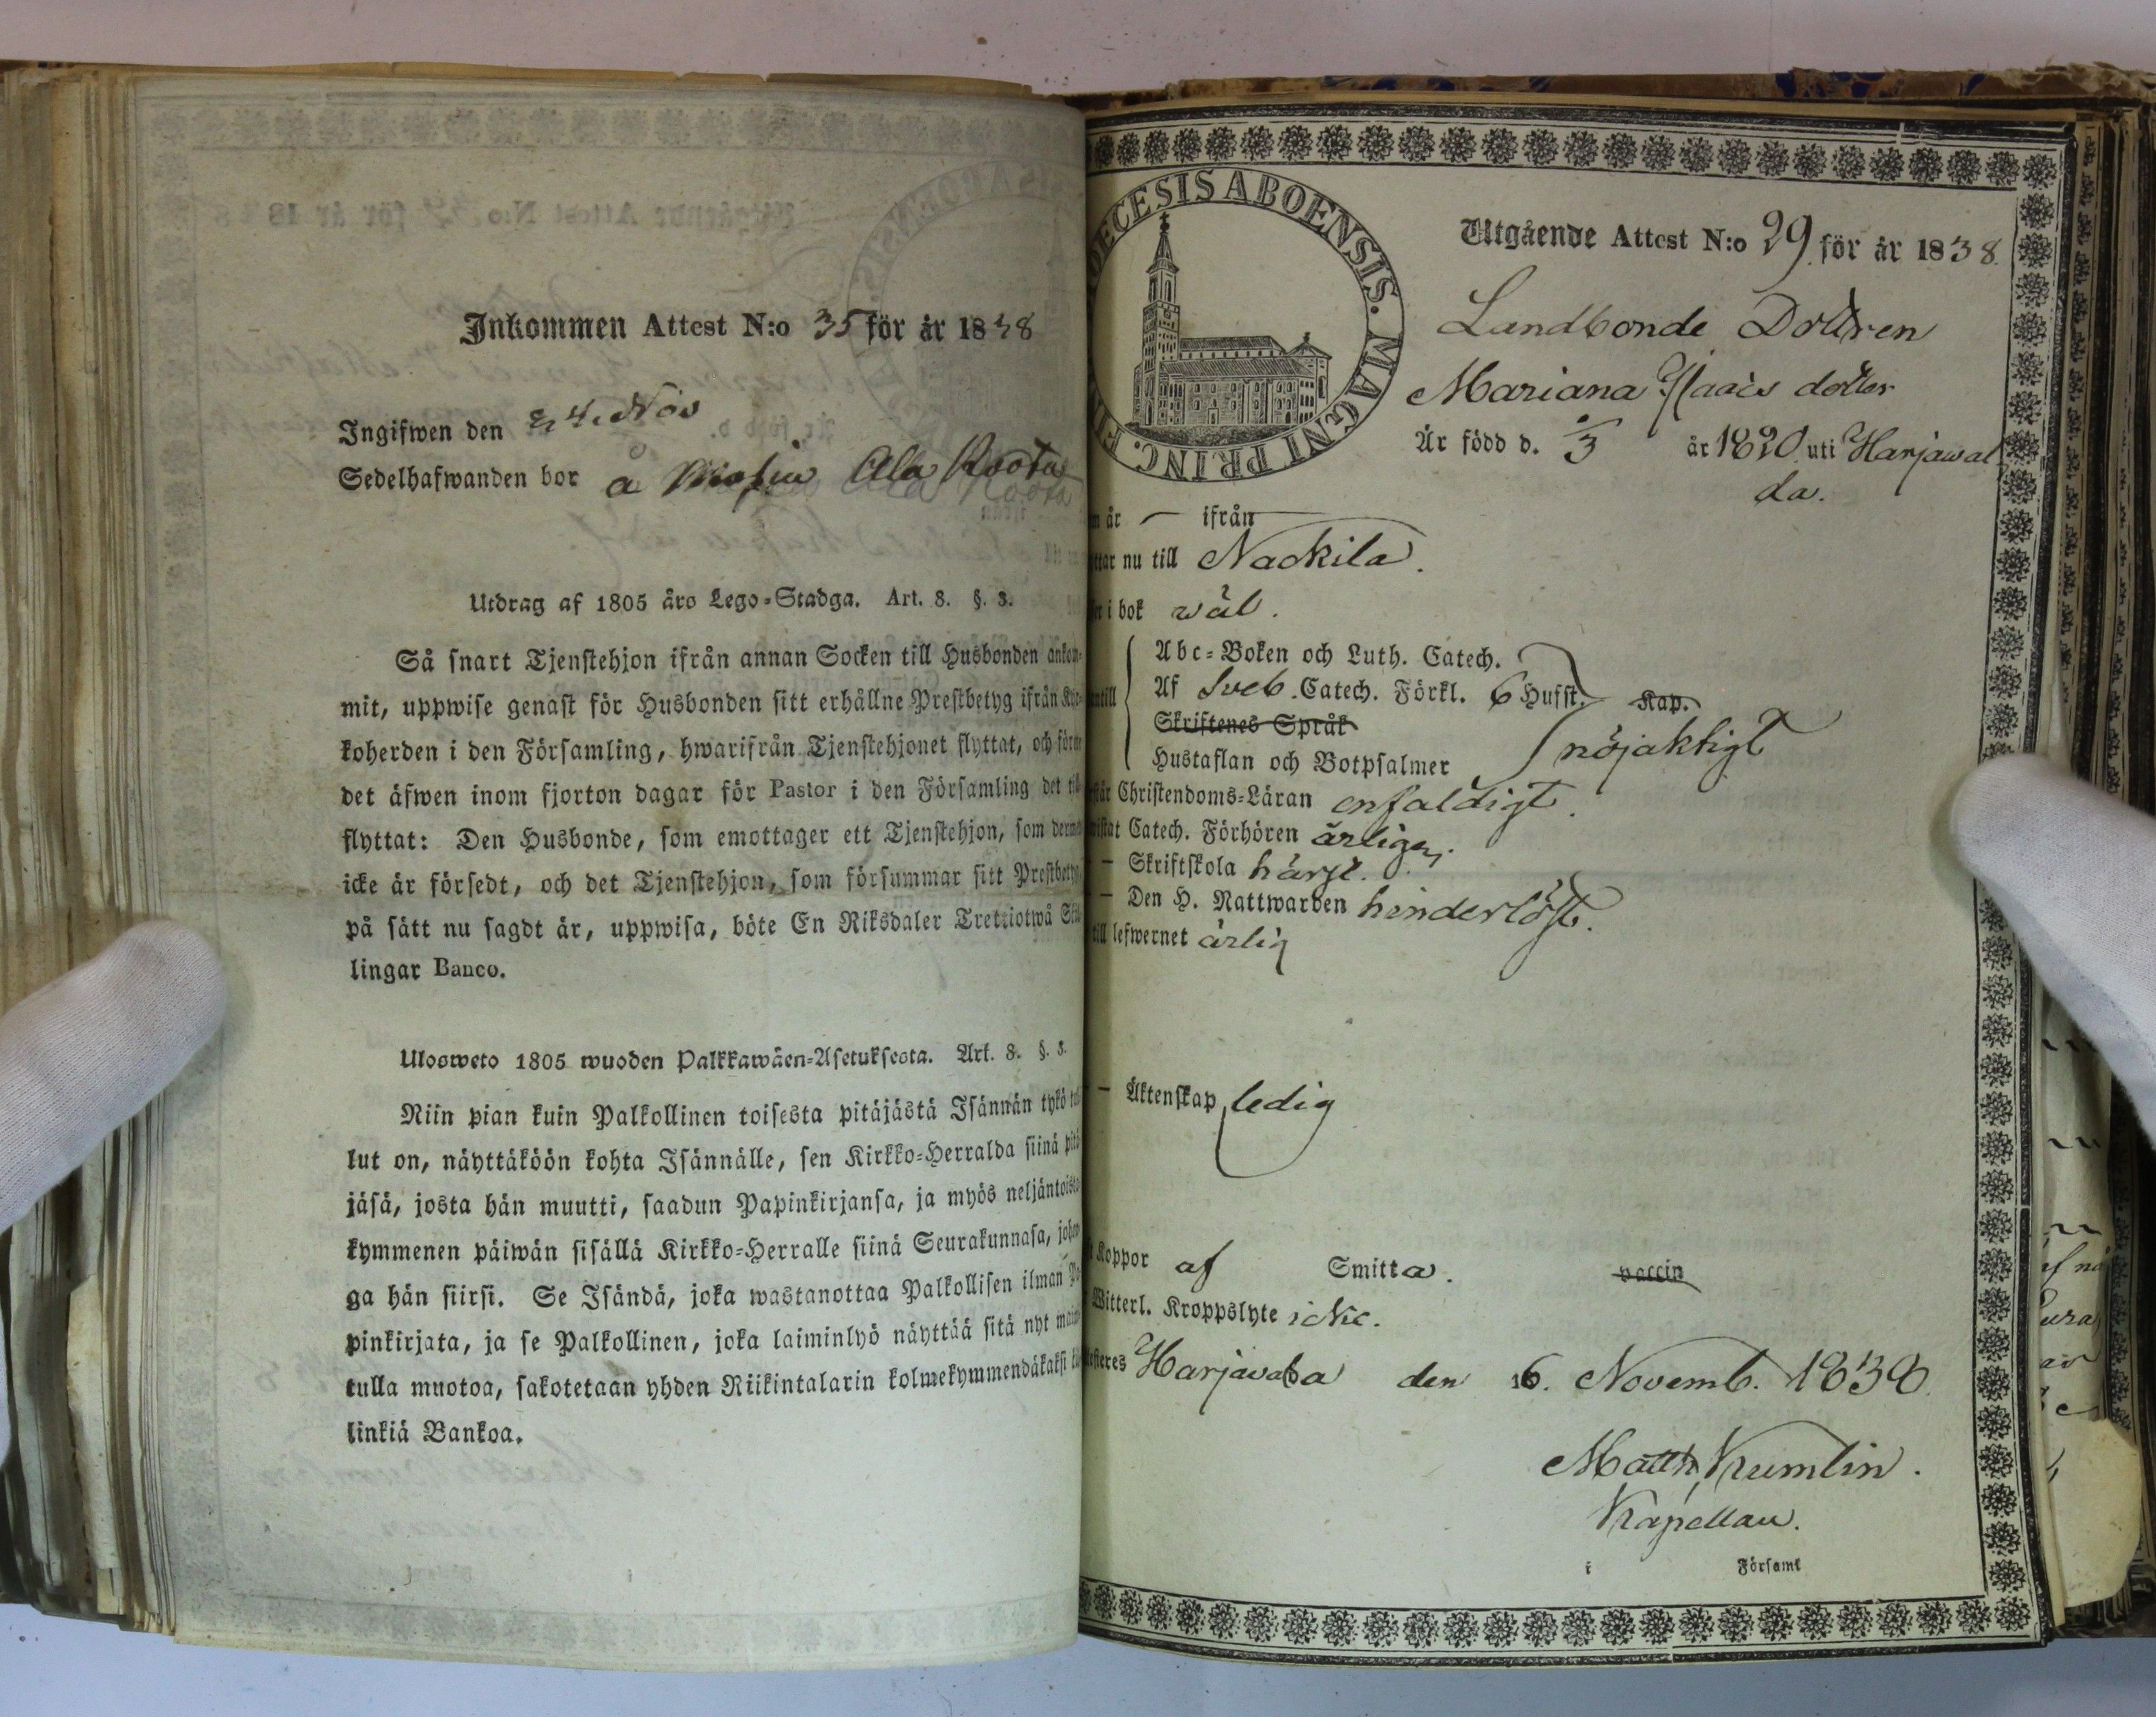 Inkommen Attest N:o 35 för år 1838
Ingifwen den 24. Nov
Sedelhafwanden bor å Ala Roota
Utdrag af 1805 års Lego-Stadga. Art. 8. §. 3.
Så snart Tjenstehjon ifrån annan Socken till Husbonden ankom-
mit, uppwise genast för Husbonden sitt erhållne Prestbetyg ifrån Kyr-
koherden i den Församling, hwarifrån Tjenstehjonet flyttat, och förete
det äfwen inom fjorton dagar för Pastor i den Församling det till
flyttat: Den Husbonde, som emottager ett Tjenstehjon, som dermed
icke är försedt, och det Tjenstehjon, som försummar sitt Prestbetyg,
på sätt nu sagdt är, uppwisa, böte En Riksdaler Trettiotwå Skil-
lingar Banco.
Ulosweto 1805 wuoden Palkkawäen-Asetuksesta. Art. 8. §. 3.
Niin pian kuin Palkollinen toisesta pitäjästä Isännän tykö tul-
lut on, näyttäköön kohta Isännälle, sen Kirkko-Herralda siinä pitä-
jäsä, josta hän muutti, saadun Papinkirjansa, ja myös neljäntoista-
kymmenen päiwän sisällä Kirkko-Herralle siinä Seurakunnasa, johon-
ga hän siirsi. Se Isändä, joka wastanottaa Palkollisen ilman Pa-
pinkirjata, ja se Palkollinen, joka laiminlyö näyttää sitä nyt maini-
tulla muotoa, sakotetaan yhden Riikintalarin kolmekymmendäkaksi kil-
linkiä Bankoa.
DIOECESIS ABOENSIS. MAGNI PRINC. FIN
Utgående Attest N:o 29 för år 1838.
Landbonde Dottren
Mariana Isaacs dotter
Är född d. /3 år 1820 uti Harjawal
da.
år — ifrån
ttar nu till Nackila.
i bok wäl.
Abc-Boken och Luth. Catech.
ntill Af Sveb. Catech. Förkl. 6 Hufst. Kap.
Skriftenes Språk
nöjaktigt
Hustaflan och Botpsalmer
står Christendoms-Läran enfaldigt.
wistat Catech. Förhören årligen.
— Skriftskola härst.
— Den H. Nattwarden hinderlöst.
till lefwernet ärlig
— Äktenskap ledig
Koppor af Smitta. vaccin
Witterl. Kroppslyte icke.
testeres Harjavalda den 16. Novemb. 1838.
Matth. Krumlin.
Kapellan.
i Församl